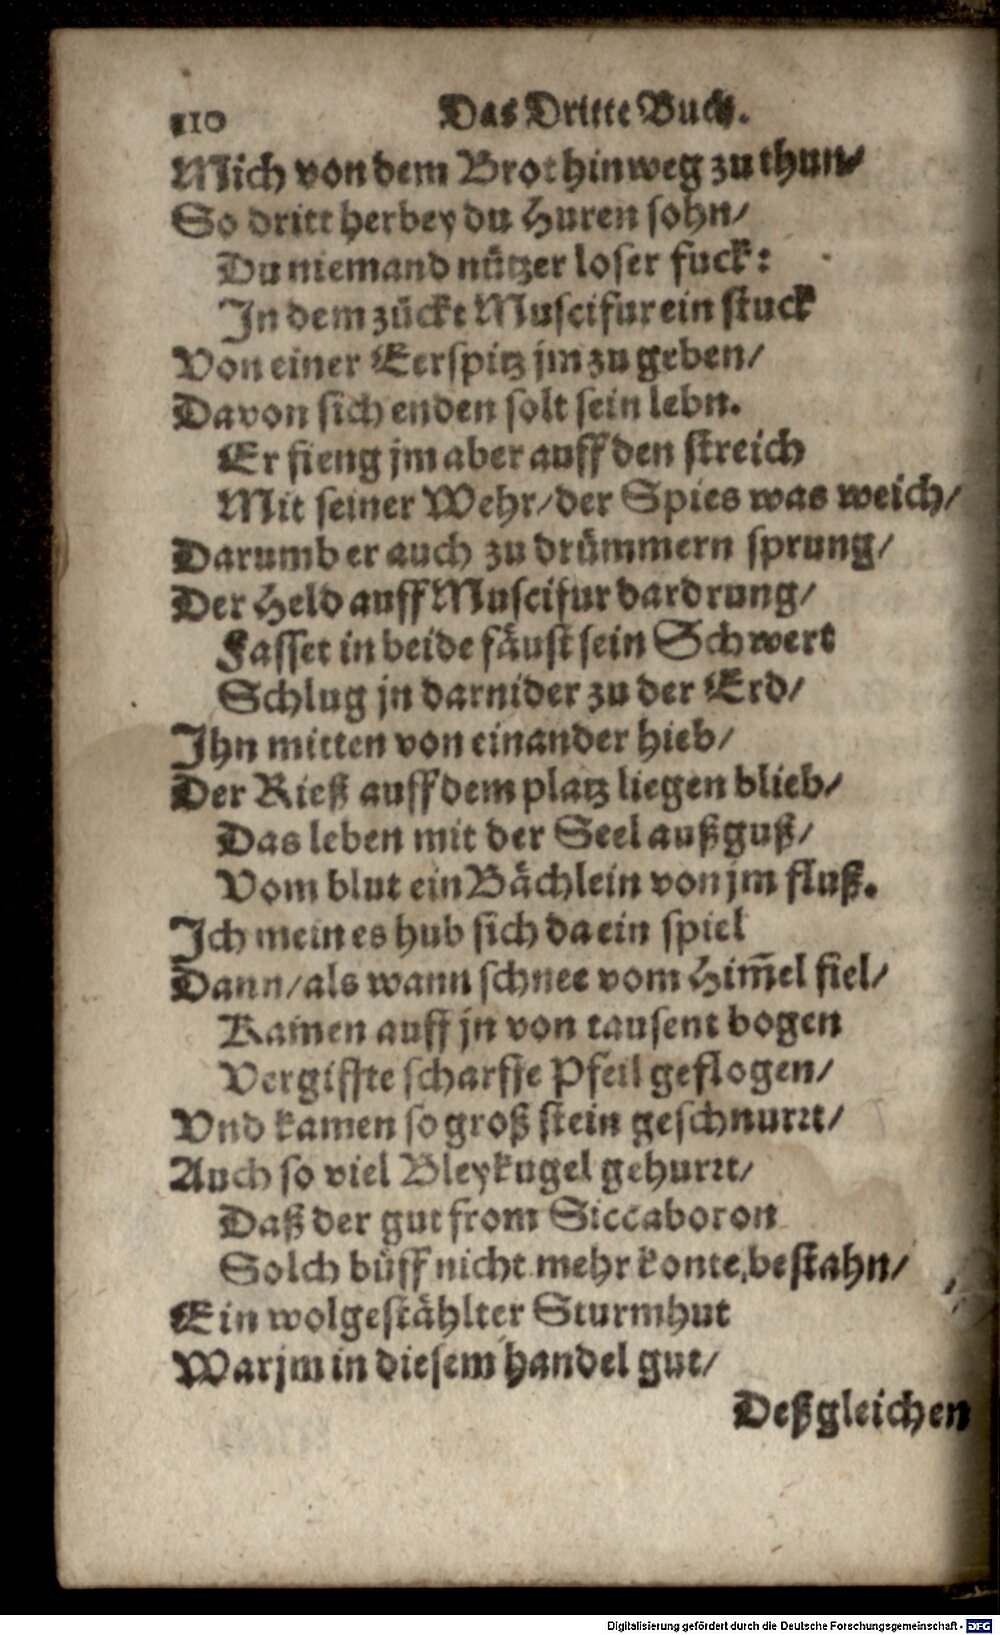 110 Das Dritte Buch.
Mich von dem Brot hinweg zu thun/
So dritt herbey du Huren sohn/
Du niemand nützer loser fuck:
In dem zückt Muscifur ein stuck
Von einer Eerspitz jm zu geben/
Davon sich enden solt sein lebn.
Er fieng jm aber auff den streich
Mit seiner Wehr/der Spies was weich/
Darumb er auch zu drümmern sprung/
Der Held auff Muscifur dardrung/
Fasset in beide fäust sein Schwert
Schlug jn darnider zu der Erd/
Ihn mitten von einander hieb/
Der Rieß auff dem platz liegen blieb/
Das leben mit der Seel außguß/
Vom blut ein Bächlein von jm fluß.
Ich mein es hub sich da ein spiel
Dann/als wann schnee vom Him̃el fiel/
Kamen auff jn von tausent bogen
Vergiffte scharffe Pfeil geflogen/
Vnd kamen so groß stein geschnurrt/
Auch so viel Bleykugel gehurrt/
Daß der gut from Siccaboron
Solch büff nicht mehr konte bestahn/
Ein wolgestählter Sturmhut
War jm in diesem handel gut/
Deßgleichen
Digitalisierung gefördert durch die Deutsche Forschungsgemeinschaft - DFG